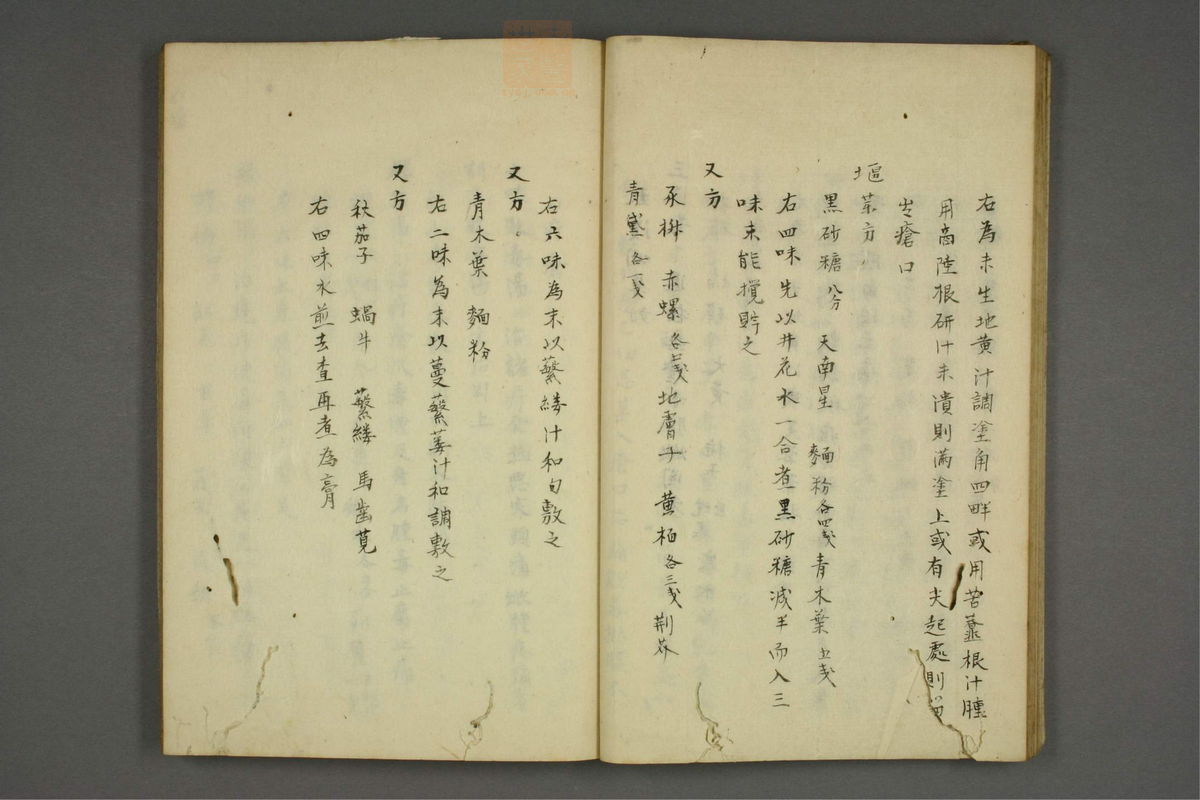 右為末生地黄汁調塗角四畔或用苦蕺根汁腫
用商陸根研汁未潰則滿塗上或有尖起處則留
出瘡口
堀菜方
黒砂糖 八分 天南星 麵粉 各四戔 青木葉 五戔
右四味先以井花水一合煮黒砂糖減半而入三
味末能攪貯之
又方
赤螺 地膚子 黄栢 各三戔 荊芥
青黛 各一戔
右六味為末以蘩縷汁和勻敷之
又方
青木葉 麵粉
右二味為末以蔓蘩蔞汁和調敷之
又方
秋茄子 蝸牛 蘩縷 馬齒莧
右四味水煎去査再煮為膏